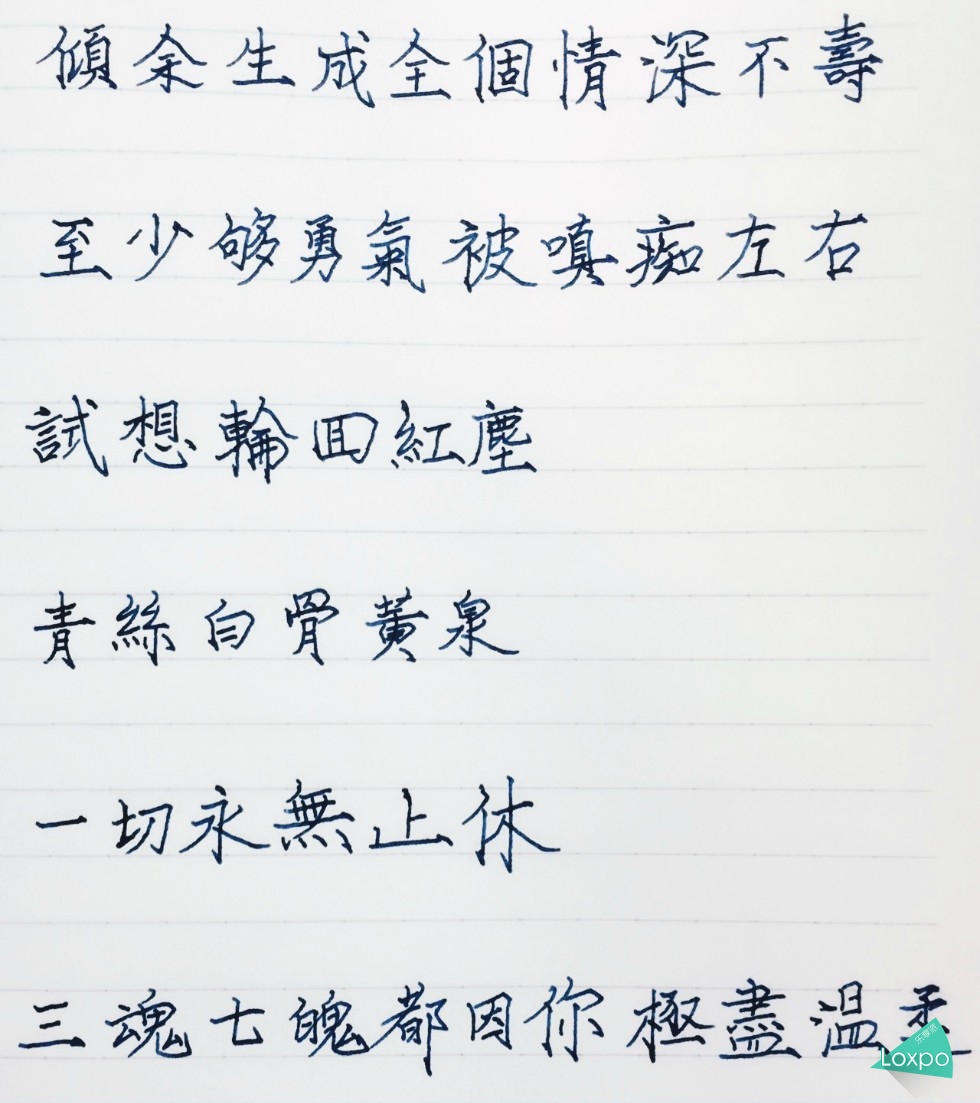 傾余生成全個情深不壽
至少够勇氣被嗔痴左右
試想輪回紅塵
青絲白骨黃泉
一切永無止休
三魂七魄都因你極盡温柔
Loxpo